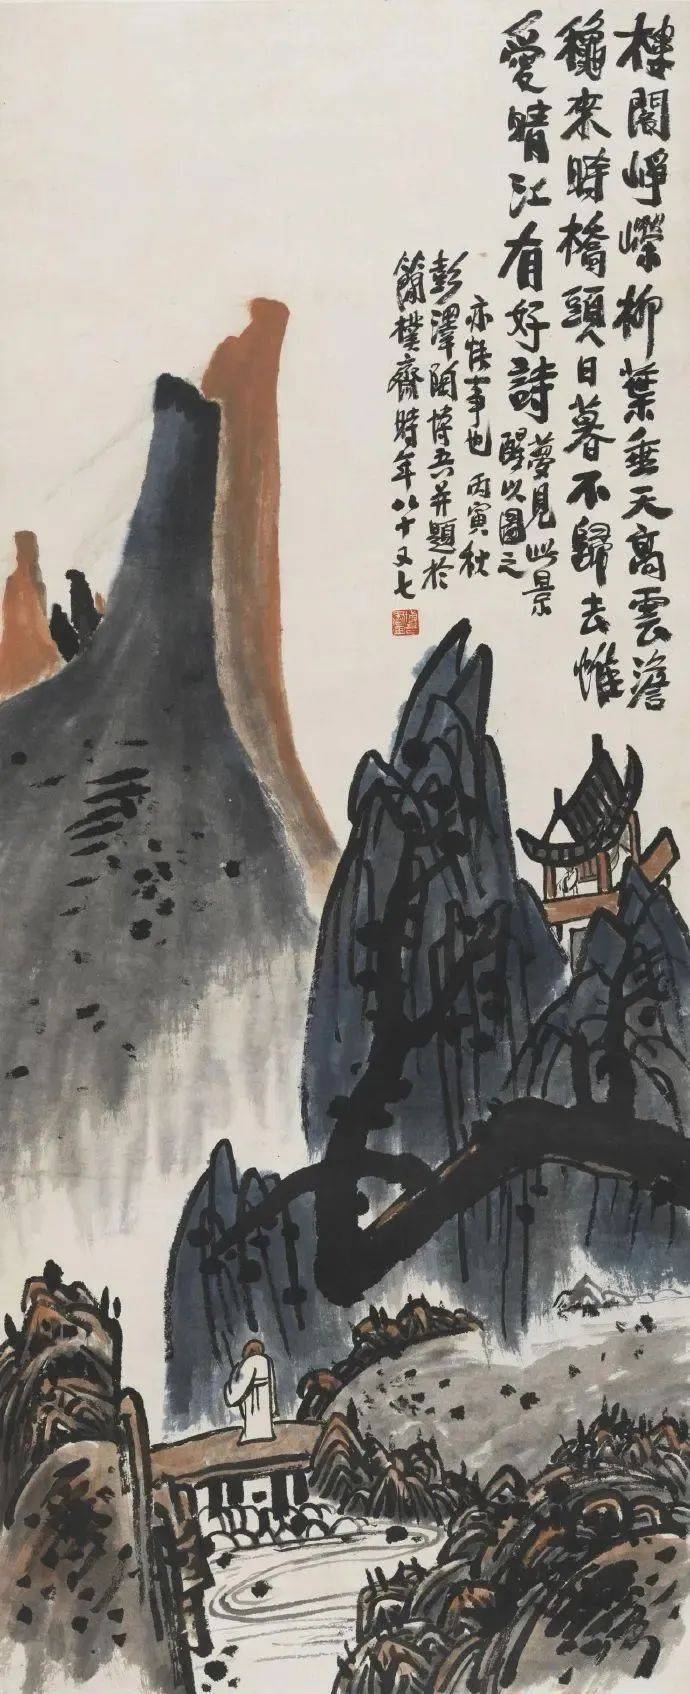 樓閣崢嶸柳葉垂天高雲澹
穐來時橋頭日暮不歸去惟
愛晴江有好詩
夢見此景
醒以圖之
亦恠事也 丙寅秋
彭澤陶博吾并題於
簡樸齋時年八十又七